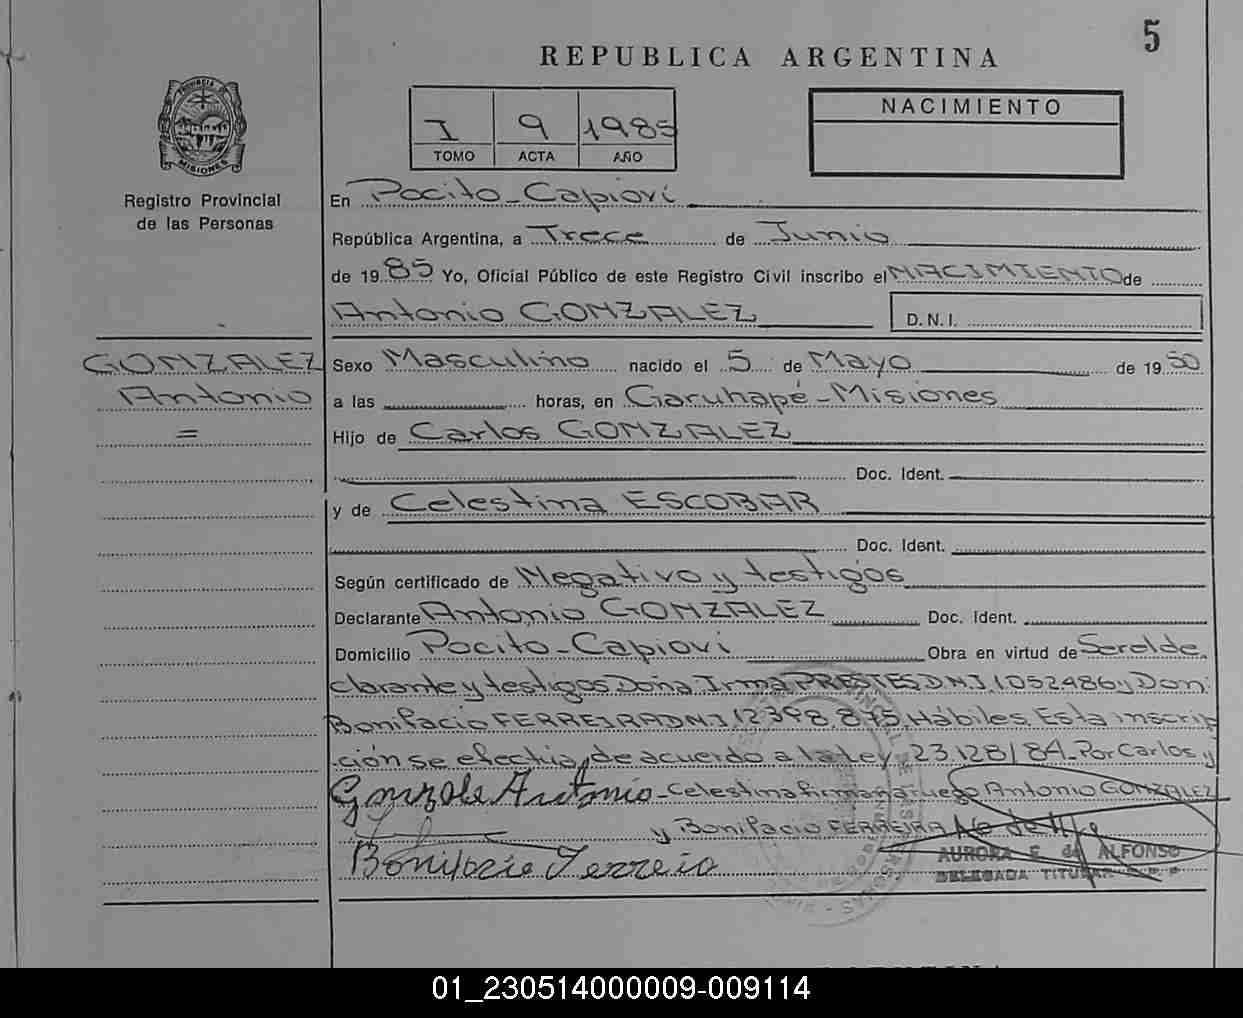 5
REPUBLICA ARGENTINA
I 9 1985
TOMO ACTA AÑO
NACIMIENTO
PROVINCIA DE
MISIONES
Registro Provincial
de las Personas
En Pocito-Capioví
República Argentina, a Trece de Junio
de 1985 Yo, Oficial Público de este Registro Civil inscribo el NACIMIENTO de
Antonio GONZALEZ
D.N.I.
GONZALEZ
Antonio
=
Sexo Masculino nacido el 5 de Mayo de 1950
a las horas, en Garuhapé-Misiones
Hijo de Carlos GONZALEZ
Doc. Ident.
y de Celestina ESCOBAR
Doc. Ident.
Según certificado de Negativo y testigos
Declarante Antonio GONZALEZ Doc. Ident.
Domicilio Pocito-Capioví Obra en virtud de Ser el de
clarante y testigos Doña Irma PRESTES D.N.I. 1052486 y Don
Bonifacio FERREIRA D.N.I 12.398.875 Hábiles. Esta inscrip
ción se efectúa de acuerdo a la Ley 23.128/84. Por Carlos y
Gonzale Antonio - Celestina firman a ruego Antonio GONZALEZ
y Bonifacio FERREIRA
Bonifacio Ferreia
AURORA E. de ALFONSO
DELEGADA TITULAR
01_230514000009-009114